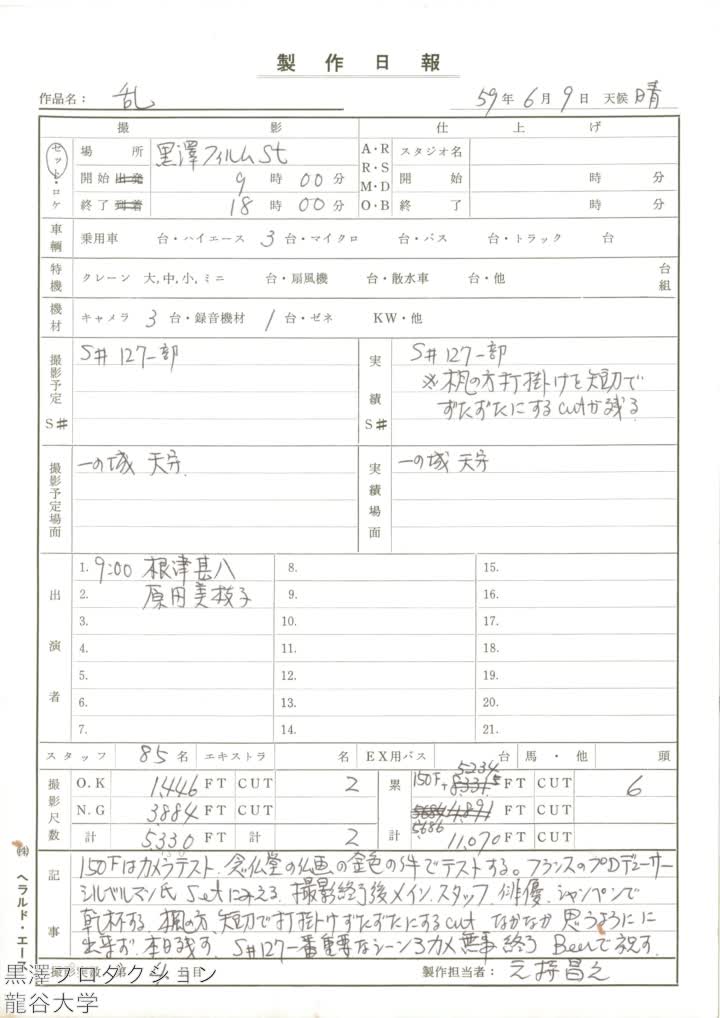 製作日報
作品名: 乱 59年 6月 9日 天候 晴
撮影 仕上げ
セット・ロケ 場所 黒澤フィルムSt A・R R・S M・D O・B スタジオ名
開始 出発 9時 00分 開始 時 分
終了 到着 18時 00分 終了 時 分
車輌 乗用車 台・ハイエース 3台・マイクロ 台・バス 台・トラック 台
特機 クレーン 大,中,小,ミニ 台・扇風機 台・散水車 台・他 台組
機材 キャメラ 3台・録音機材 1台・ゼネ KW・他
撮影予定 S# S#127一部 実績 S# S#127一部
※楓の方打掛けを短刀で
ずたずたにするcutが残る
撮影予定場面 一の城 天守 実績場面 一の城 天守
出演者
1. 9:00 根津甚八 8. 15.
2. 原田美枝子 9. 16.
3. 10. 17.
4. 11. 18.
5. 12. 19.
6. 13. 20.
7. 14. 21.
スタッフ 85名 エキストラ 名 EX用バス 台 馬・他 頭
撮影尺数 O.K 1,446 FT CUT 2 累計 150F+ 5234 FT CUT 6
N.G 3884 FT CUT 5686 FT CUT
計 5,330 FT 計 2 11,070 FT CUT
記事 150Fはカメラテスト.念仏堂の仏画の金色の件でテストする。フランスのプロデューサー
シルベルマン氏 Setにみえる.撮影終了後メイン.スタッフ.俳優.シャンペンで
乾杯する.楓の方.短刀で打掛けずたずたにするcut なかなか思うように
出来ず.本日残す.S#127一番重要なシーン3カメ無事終了 Beerで祝す.
撮影実数 第 日目 製作担当者:
㈱ヘラルド・エース
黒澤プロダクション
龍谷大学